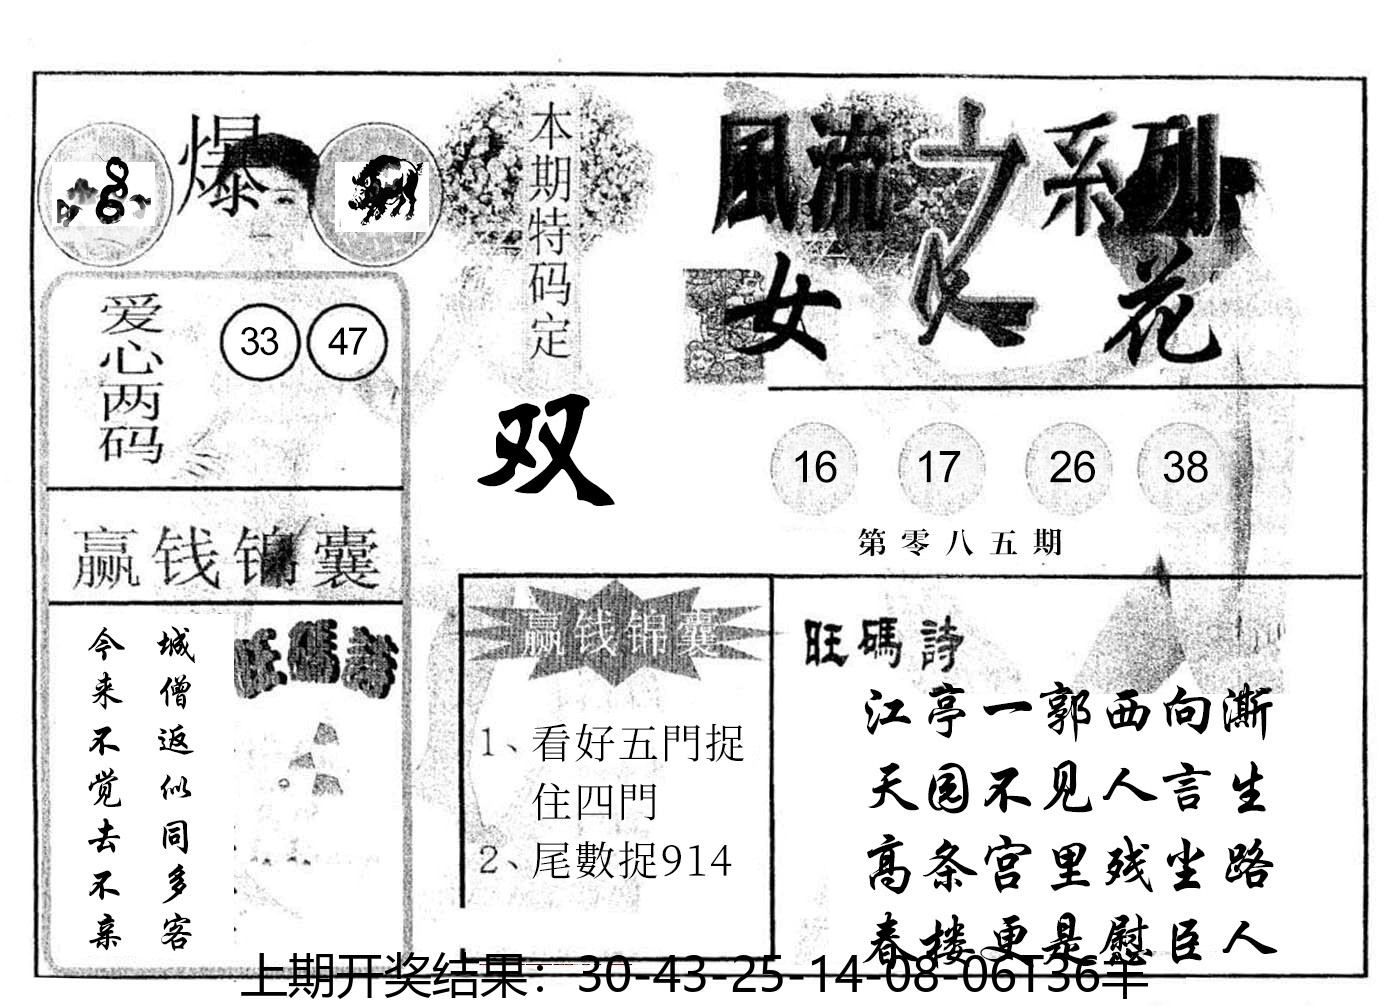 爆
本期特码定
双
風流之系列
女人花
爱心两码
33 47
16 17 26 38
第零八五期
赢钱锦囊
城僧返似同多客
今来不觉去不亲
旺碼詩
赢钱锦囊
1、看好五門捉
住四門
2、尾數捉914
旺碼詩
江亭一郭西向澌
天园不见人言生
高条宫里残尘路
春搂更是慰臣人
上期开奖结果：30-43-25-14-08-06T36羊